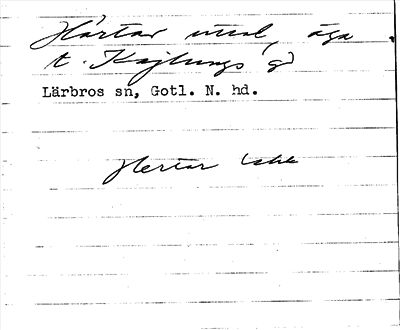 Hartar med, äga
t. Kajlungs gd
Lärbros sn, Gotl. N. hd.
Hertar